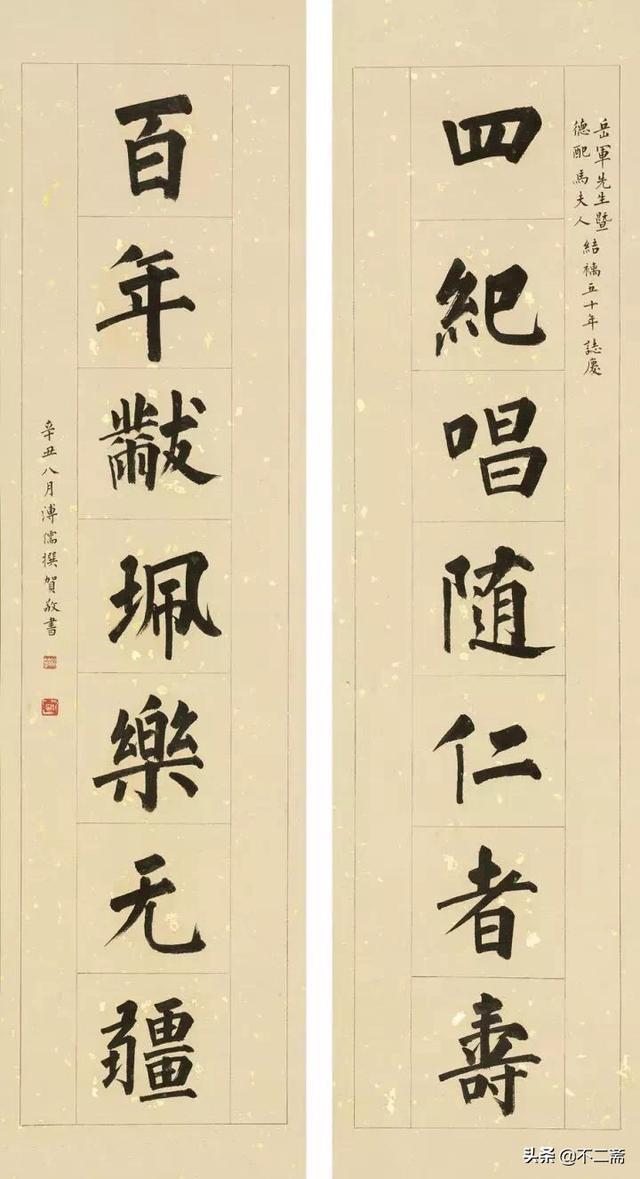 岳軍先生暨
德配馬夫人結褵五十年誌慶
四紀唱随仁者壽
百年黻珮樂无疆
辛丑八月溥儒撰賀敬書
头条 @不二斋